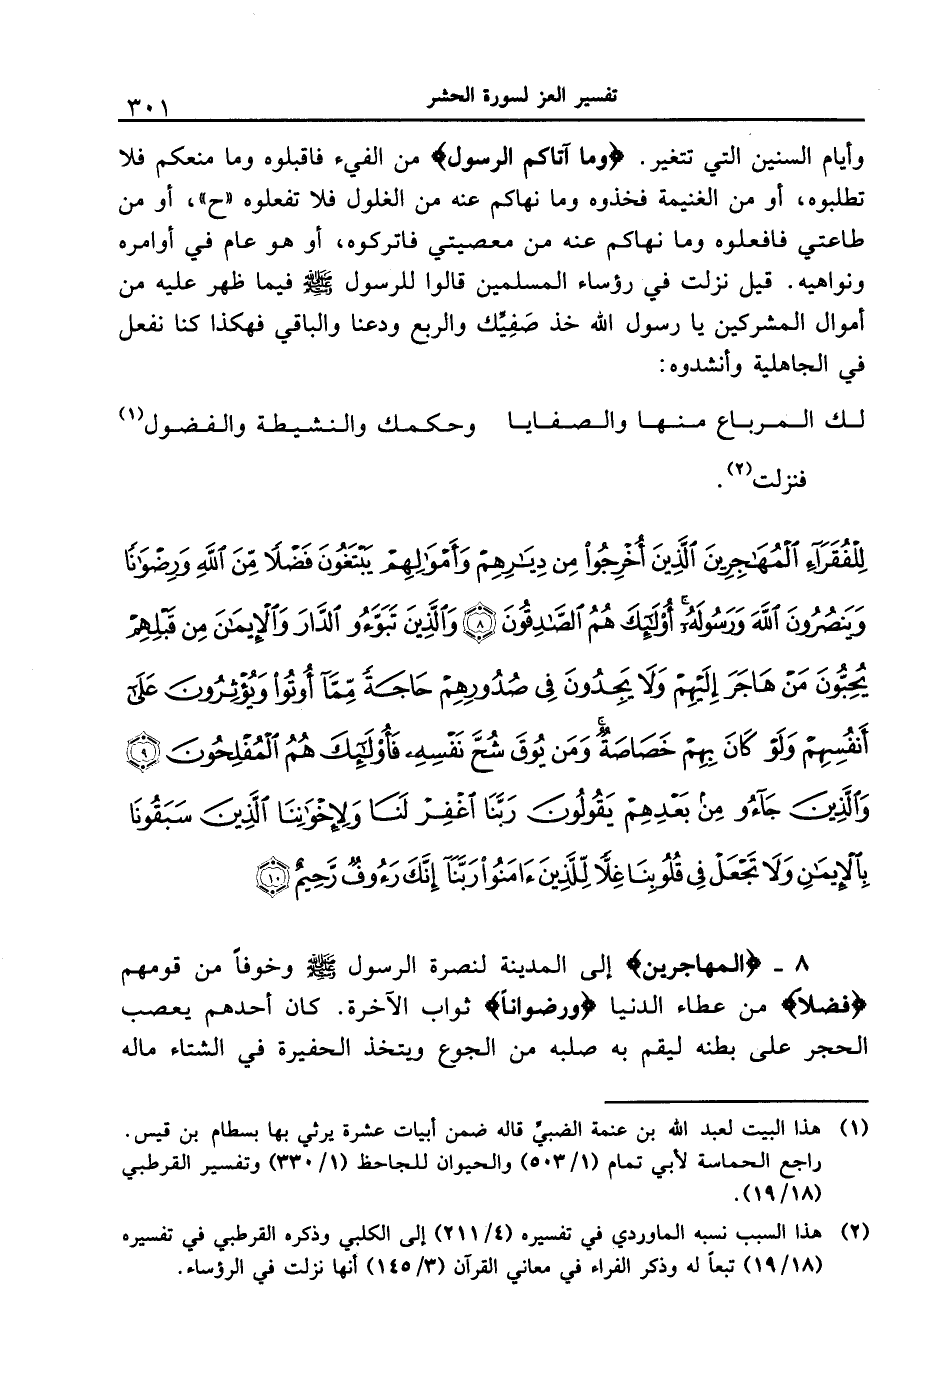 تفسير العز لسورة الحشر
٣٠١
وأيام السنين التي تتغير. ﴿وما آتاكم الرسول﴾ من الفيء فاقبلوه وما منعكم فلا
تطلبوه، أو من الغنيمة فخذوه وما نهاكم عنه من الغلول فلا تفعلوه «ح»، أو من
طاعتي فافعلوه وما نهاكم عنه من معصيتي فاتركوه، أو هو عام في أوامره
ونواهيه. قيل نزلت في رؤساء المسلمين قالوا للرسول ﷺ فيما ظهر عليه من
أموال المشركين يا رسول الله خذ صَفِيَّك والربع ودعنا والباقي فهكذا كنا نفعل
في الجاهلية وأنشدوه:
لك المرباع منها والصفايا وحكمك والنشيطة والفضول(١)
فنزلت(٢).
لِلْفُقَرَآءِ ٱلْمُهَـٰجِرِينَ ٱلَّذِينَ أُخْرِجُوا۟ مِن دِيَـٰرِهِمْ وَأَمْوَٰلِهِمْ يَبْتَغُونَ فَضْلًا مِّنَ ٱللَّهِ وَرِضْوَٰنًا
وَيَنصُرُونَ ٱللَّهَ وَرَسُولَهُۥٓ ۚ أُو۟لَـٰٓئِكَ هُمُ ٱلصَّـٰدِقُونَ ﴿٨﴾ وَٱلَّذِينَ تَبَوَّءُو ٱلدَّارَ وَٱلْإِيمَـٰنَ مِن قَبْلِهِمْ
يُحِبُّونَ مَنْ هَاجَرَ إِلَيْهِمْ وَلَا يَجِدُونَ فِى صُدُورِهِمْ حَاجَةً مِّمَّآ أُوتُوا۟ وَيُؤْثِرُونَ عَلَىٰٓ
أَنفُسِهِمْ وَلَوْ كَانَ بِهِمْ خَصَاصَةٌ ۚ وَمَن يُوقَ شُحَّ نَفْسِهِۦ فَأُو۟لَـٰٓئِكَ هُمُ ٱلْمُفْلِحُونَ ﴿٩﴾
وَٱلَّذِينَ جَآءُو مِنۢ بَعْدِهِمْ يَقُولُونَ رَبَّنَا ٱغْفِرْ لَنَا وَلِإِخْوَٰنِنَا ٱلَّذِينَ سَبَقُونَا
بِٱلْإِيمَـٰنِ وَلَا تَجْعَلْ فِى قُلُوبِنَا غِلًّا لِّلَّذِينَ ءَامَنُوا۟ رَبَّنَآ إِنَّكَ رَءُوفٌ رَّحِيمٌ ﴿١٠﴾
٨ ـ ﴿المهاجرين﴾ إلى المدينة لنصرة الرسول ﷺ وخوفاً من قومهم
﴿فضلاً﴾ من عطاء الدنيا ﴿ورضواناً﴾ ثواب الآخرة. كان أحدهم يعصب
الحجر على بطنه ليقم به صلبه من الجوع ويتخذ الحفيرة في الشتاء ماله
(١) هذا البيت لعبد الله بن عنمة الضبيِّ قاله ضمن أبيات عشرة يرثي بها بسطام بن قيس.
راجع الحماسة لأبي تمام (٥٠٣/١) والحيوان للجاحظ (٣٣٠/١) وتفسير القرطبي
(١٩/١٨).
(٢) هذا السبب نسبه الماوردي في تفسيره (٢١١/٤) إلى الكلبي وذكره القرطبي في تفسيره
(١٩/١٨) تبعاً له وذكر الفراء في معاني القرآن (١٤٥/٣) أنها نزلت في الرؤساء.